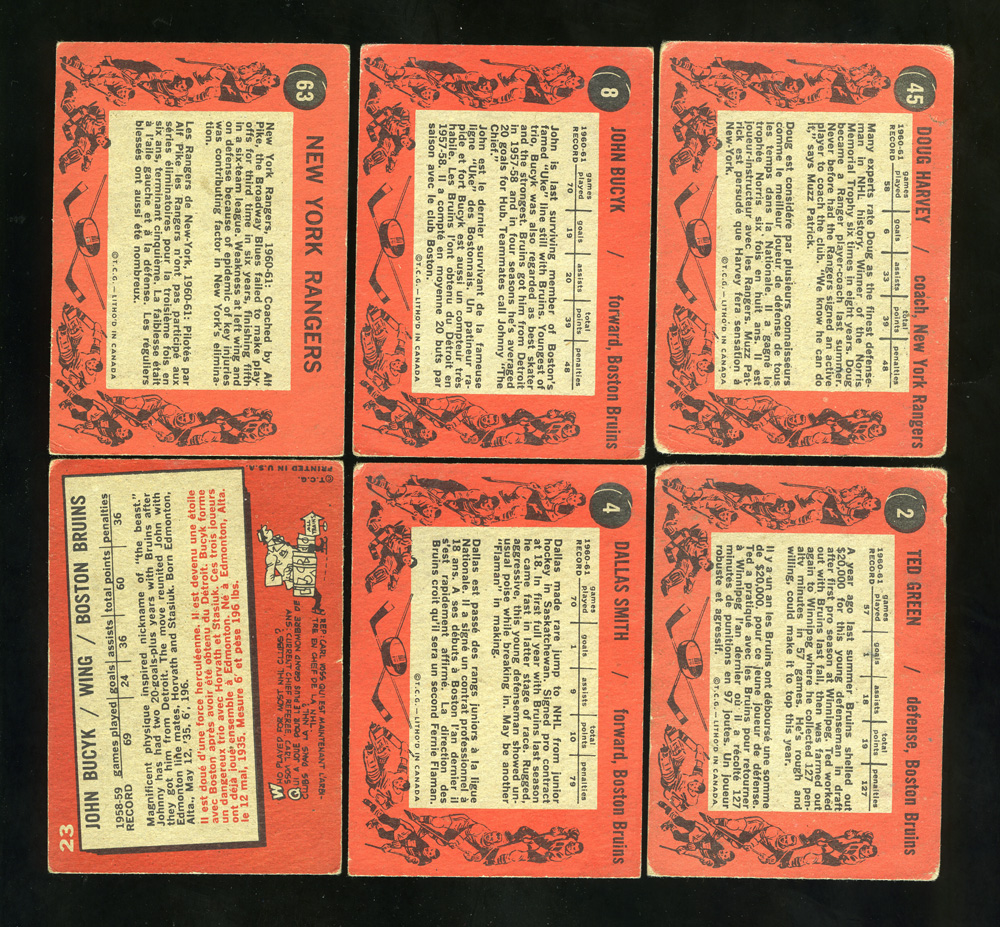 63
NEW YORK RANGERS
New York Rangers, 1960-61: Coached by Alf
Pike, the Broadway Blues failed to make play-
offs for third time in six years, finishing fifth
in a six-team league. Weakness at left wing and
on defense because of epidemic of key injuries
was contributing factor in New York's elimina-
tion.
Les Rangers de New-York, 1960-61: Pilotés par
Alf Pike les Rangers n'ont pas participé aux
séries éliminatoires pour la troisième fois en
six ans, terminant cinquième. La faiblesse était
à l'aile gauche et à la défense. Les réguliers
blessés on aussi été nombreux.
©T.C.G.—LITHO'D IN CANADA
8
JOHN BUCYK / forward, Boston Bruins
1960-61 RECORD
games played goals assists total points penalties
70 19 20 39 48
John is last surviving member of Boston's
famed "Uke" line still with Bruins. Youngest of
trio, Bucyk was also regarded as best skater
and the strongest. Bruins got him from Detroit
in 1957-58 and in four seasons he's averaged
20 goals for Hub. Teammates call Johnny "The
Chief."
John est le dernier survivant de la fameuse
ligne "Uke" des Bostonnais. Un patineur ra-
pide et fort Bucyk est aussi un compteur très
habile. Les Bruins l'ont obtenu du Détroit en
1957-58. Il a compté en moyenne 20 buts par
saison avec le club Boston.
©T.C.G.—LITHO'D IN CANADA
45
DOUG HARVEY / coach, New York Rangers
1960-61 RECORD
games played goals assists total points penalties
58 6 33 39 48
Many experts rate Doug as the finest defense-
man in NHL history. Winner of the Norris
Memorial Trophy six times in eight years. Doug
became a Ranger player-coach last summer.
Never before had the Rangers signed an active
player to coach the club. "We know he can do
it," says Muzz Patrick.
Doug est considéré par plusieurs connaisseurs
comme le meilleur joueur de défense de tous
les temps dans la Nationale. Il a gagné le
trophée Norris six fois en huit ans. Il est
joueur-instructeur avec les Rangers. Muzz Pat-
rick est persuadé que Harvey fera sensation à
New-York.
©T.C.G.—LITHO'D IN CANADA
23
JOHN BUCYK / WING / BOSTON BRUINS
1958-59 RECORD
games played goals assists total points penalties
69 24 36 60 36
Magnificent physique inspired nickname of "the beast."
Johnny has had two 20-goals-plus years with Bruins after
they got him from Detroit. The move reunited John with
Edmonton line mates, Horvath and Stasiuk. Born Edmonton,
Alta., May 12, '35, 6', 196.
Il est doué d'une force herculéenne. Il est devenu une étoile
avec Boston après avoir été obtenu du Détroit. Bucyk forme
un dangereux trio avec Horvath et Stasiuk. Ces trois joueurs
on déjà joué ensemble à Edmonton. Né à Edmonton, Alta.
le 12 mai, 1935. Mesure 6' et pèse 196 lbs.
©T.C.G. PRINTED IN U.S.A.
4
DALLAS SMITH / forward, Boston Bruins
1960-61 RECORD
games played goals assists total points penalties
70 1 9 10 79
Dallas made rare jump to NHL from junior
hockey in Saskatchewan. Signed pro contract
at 18. In first full year with Bruins last season
he came fast in latter stage of race. Rugged,
aggressive, this young defenseman showed un-
usual poise while breaking in. May be another
"Flaman" in making.
Dallas est passé des rangs juniors à la ligue
Nationale. Il a signé un contrat professionnel à
18 ans. A ses débuts à Boston l'an dernier il
s'est rapidement affirmé. La direction des
Bruins croit qu'il sera un second Fernie Flaman.
©T.C.G.—LITHO'D IN CANADA
2
TED GREEN / defense, Boston Bruins
1960-61 RECORD
games played goals assists total points penalties
57 1 18 19 127
A year ago last summer Bruins shelled out
$20,000 for this young defenseman in draft
after first pro season at Winnipeg. Ted worked
out with Bruins last fall, then was farmed out
again to Winnipeg where he collected 127 pen-
alty minutes in 57 games. He's rough and
willing, could make it to top this year.
Il y a un an les Bruins ont déboursé une somme
de $20,000 pour ce jeune joueur de défense.
Ted a pratiqué avec les Bruins pour retourner
à Winnipeg l'an dernier où il a récolté 127
minutes de punitions en 97 joutes. Un joueur
robuste et agressif.
©T.C.G.—LITHO'D IN CANADA